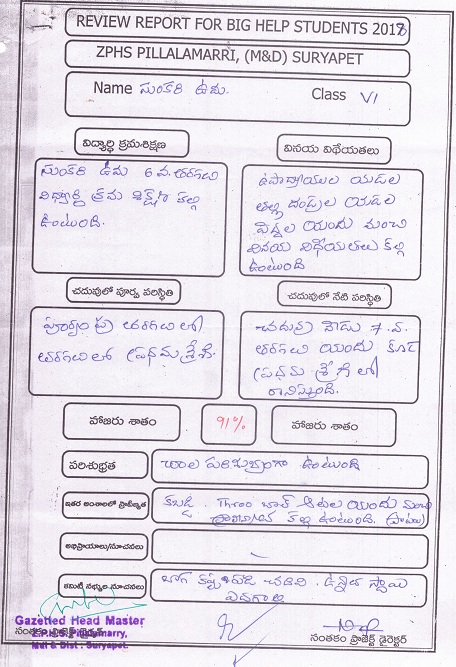 REVIEW REPORT FOR BIG HELP STUDENTS 2018
ZPHS PILLALAMARRI, (M&D) SURYAPET
Name సుంకరి ఉమ. Class VI
విద్యార్థి క్రమశిక్షణ
వినయ విధేయతలు
సుంకరి ఉమ 6 వ. తరగతి
విద్యార్థి క్రమ శిక్షణ కల్గి
ఉంటుంది.
ఉపాధ్యాయుల యెడల
తల్లి దండ్రుల యెడల
పెద్దల యందు మంచి
వినయ విధేయతలు కల్గి
ఉంటుంది
చదువులో పూర్వ పరిస్థితి
చదువులో నేటి పరిస్థితి
పూర్వపు తరగతి లో
తరగతి లో ప్రథమ శ్రేణి.
చదువు నాడు 7.వ.
తరగతి యందు కూడ
ప్రథమ శ్రేణి లో
రాణిస్తుంది.
హాజరు శాతం 91% హాజరు శాతం
పరిశుభ్రత చాల పరిశుభ్రంగా ఉంటుంది
ఇతర అంశాలలో ప్రావీణ్యత కబడ్డి. Throo బాల్ ఆటల యందు మంచి
కల్గి ఉంటుంది.
అభిప్రాయాలు/సూచనలు –
కమిటీ సభ్యుల సూచనలు బాగ కష్టపడి చదివి. ఉన్నత స్థాయి
ఎదగాలి
Gazetted Head Master
Z.P.H.S. Pillalamarry,
Mdl & Dist : Suryapet.
సంతకం ప్రాజెక్ట్ డైరెక్టర్